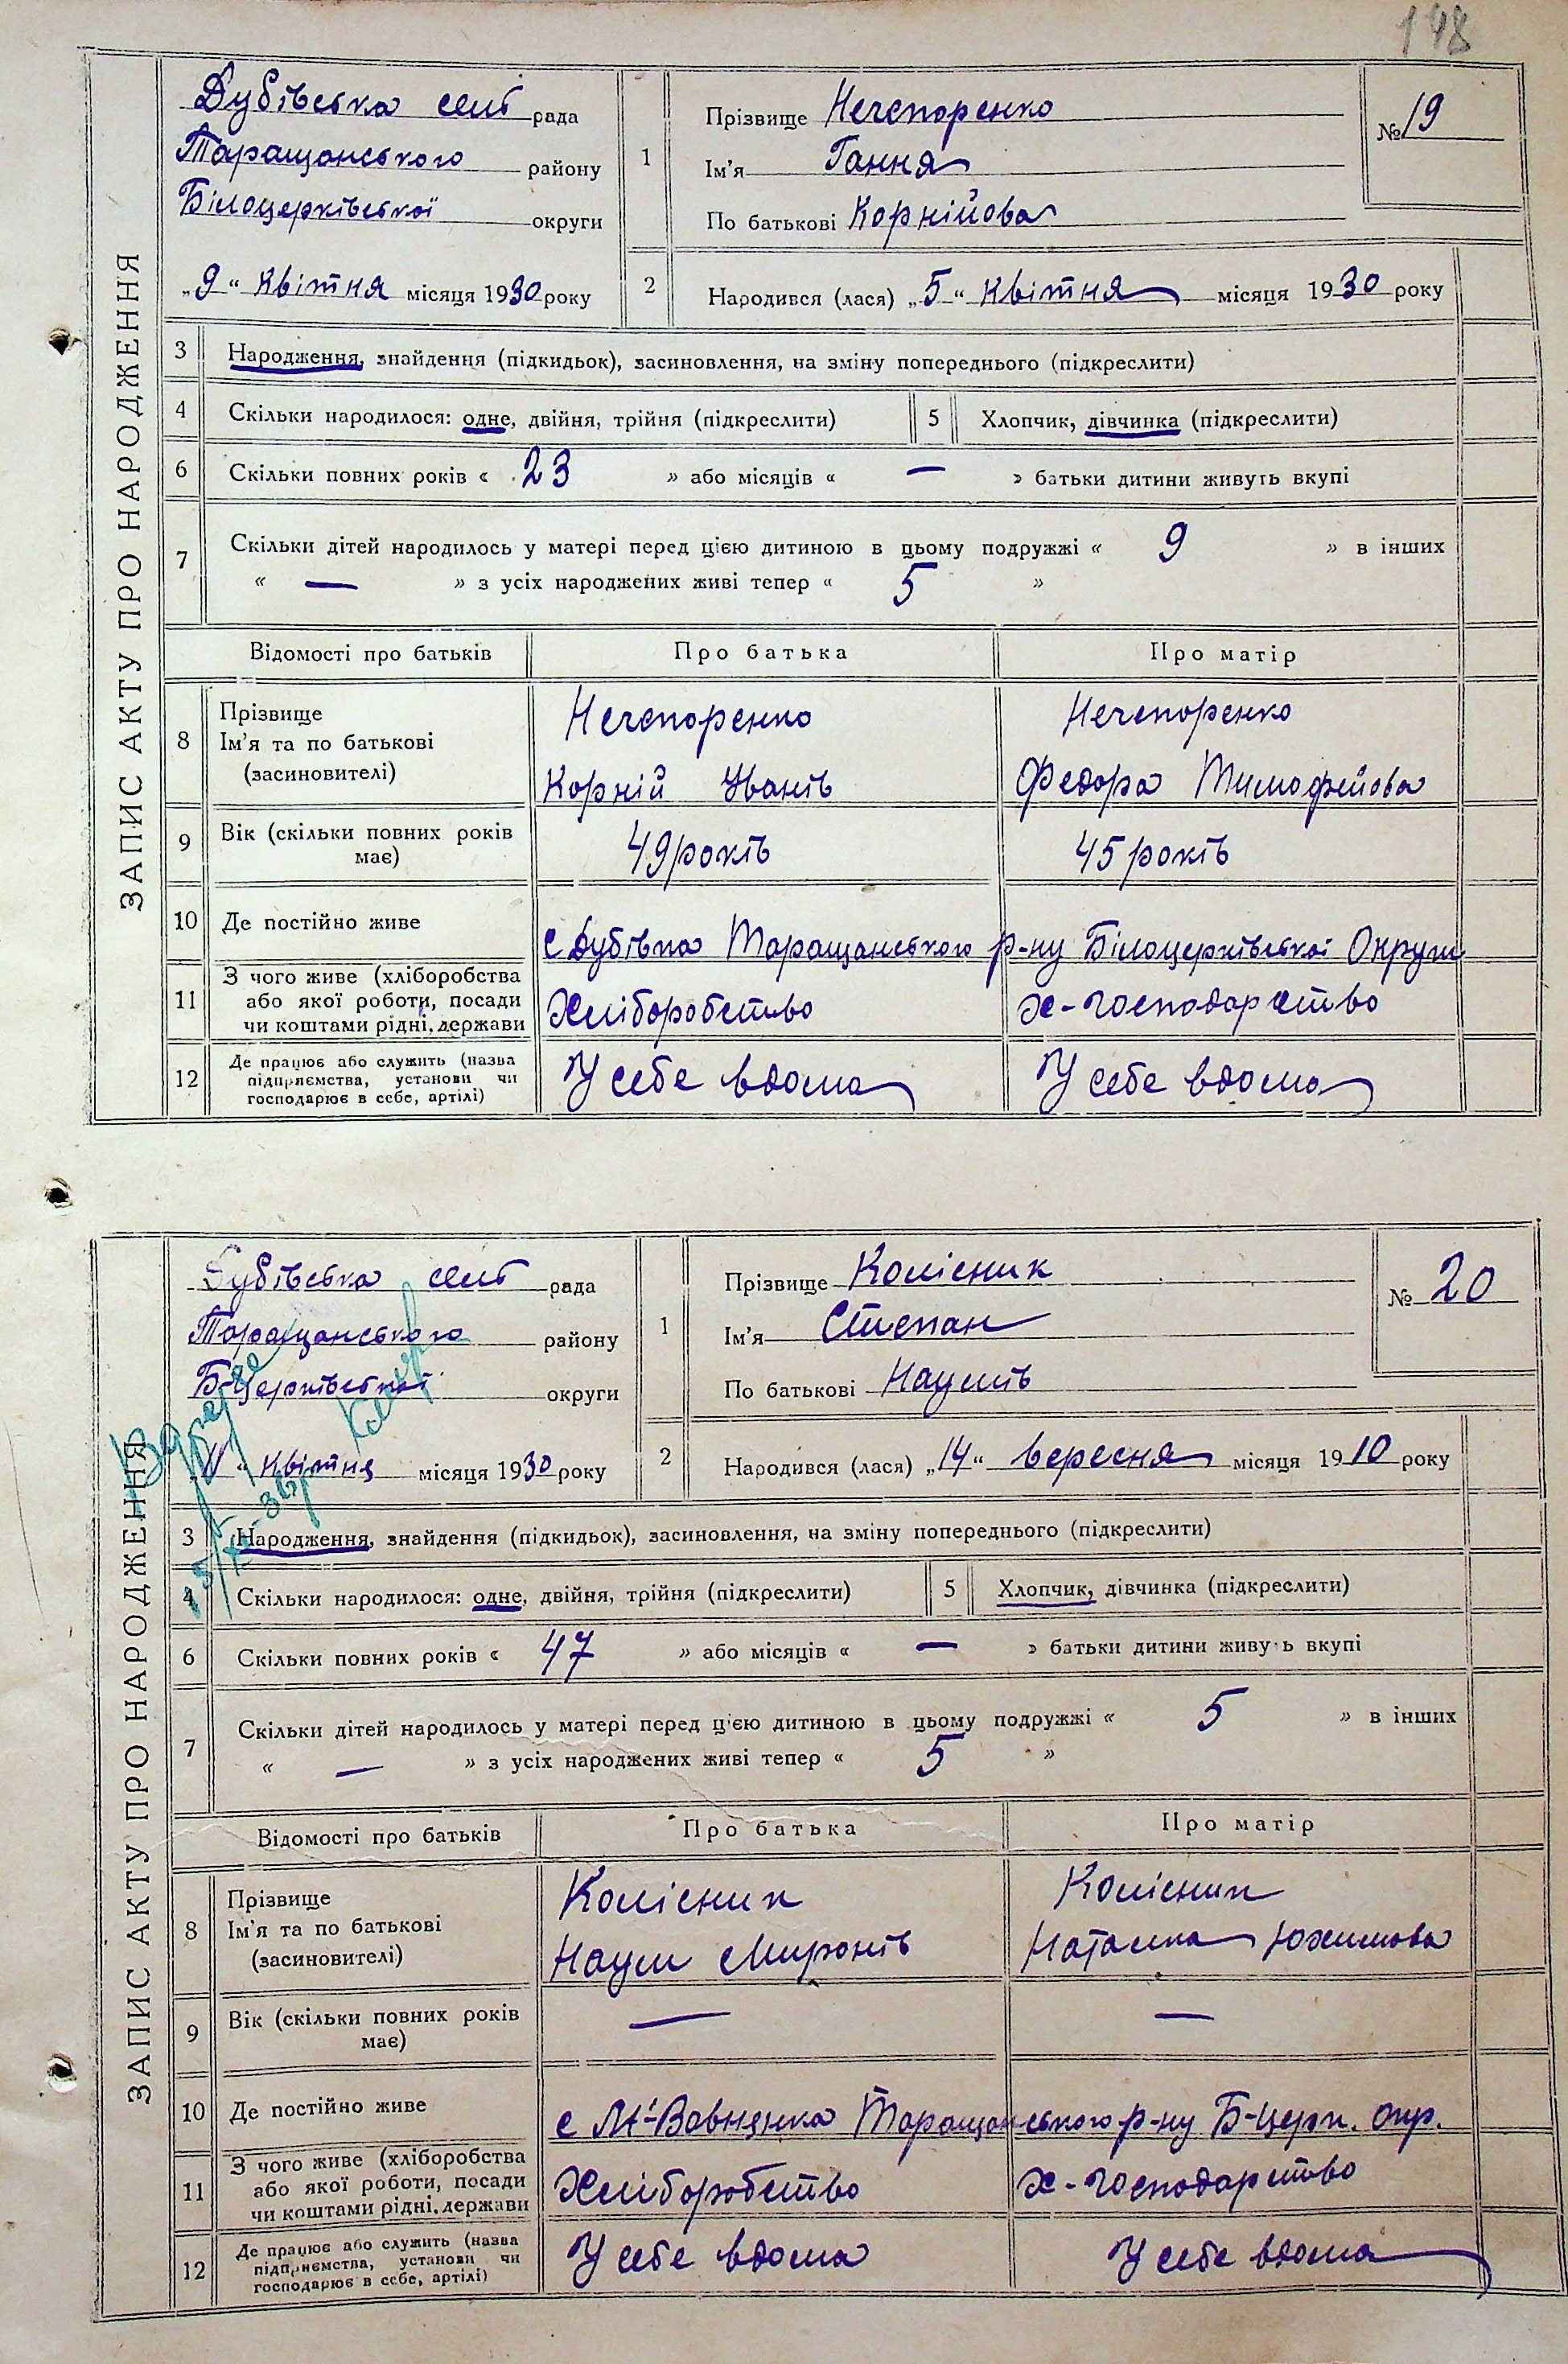 148
ЗАПИС АКТУ ПРО НАРОДЖЕННЯ
Дубівська сіл рада
Таращанського району
Білоцерківської округи
„9“ Квітня місяця 1930 року
1
Прізвище Нечепоренко
Ім'я Гання
По батькові Корнійова
№ 19
2
Народився (лася) „5“ Квітня місяця 1930 року
3 Народження, знайдення (підкидьок), засиновлення, на зміну попереднього (підкреслити)
4 Скільки народилося: одне, двійня, трійня (підкреслити) 5 Хлопчик, дівчинка (підкреслити)
6 Скільки повних років « 23 » або місяців « — » батьки дитини живуть вкупі
7 Скільки дітей народилось у матері перед цією дитиною в цьому подружжі « 9 » в інших
« — » з усіх народжених живі тепер « 5 »
Відомості про батьків Про батька Про матір
8 Прізвище Нечепоренко Нечепоренко
Ім'я та по батькові
(засиновителі) Корній Іванів Федора Тимофейова
9 Вік (скільки повних років
має) 49 років 45 років
10 Де постійно живе с Дубівка Таращанського р-ну Білоцерківської Округи
11 З чого живе (хліборобства
або якої роботи, посади
чи коштами рідні, держави Хліборобство х-господарство
12 Де працює або служить (назва
підприємства, установи чи
господарює в себе, артілі) У себе вдома У себе вдома
ЗАПИС АКТУ ПРО НАРОДЖЕННЯ
Дубівська сіл рада
Таращанського району
Б-Церківської округи
квітня місяця 1930 року
1
Прізвище Колісник
Ім'я Степан
По батькові Наумів
№ 20
2
Народився (лася) „14“ вересня місяця 1910 року
3 Народження, знайдення (підкидьок), засиновлення, на зміну попереднього (підкреслити)
4 Скільки народилося: одне, двійня, трійня (підкреслити) 5 Хлопчик, дівчинка (підкреслити)
6 Скільки повних років « 47 » або місяців « — » батьки дитини живуть вкупі
7 Скільки дітей народилось у матері перед цією дитиною в цьому подружжі « 5 » в інших
« — » з усіх народжених живі тепер « 5 »
Відомості про батьків Про батька Про матір
8 Прізвище Колісник Колісник
Ім'я та по батькові
(засиновителі) Наум Миронів Наталка Юхимова
9 Вік (скільки повних років
має) — —
10 Де постійно живе с М-Вовнянка Таращанського р-ну Б-Церк. окр.
11 З чого живе (хліборобства
або якої роботи, посади
чи коштами рідні, держави Хліборобство х-господарство
12 Де працює або служить (назва
підприємства, установи чи
господарює в себе, артілі) У себе вдома У себе вдома